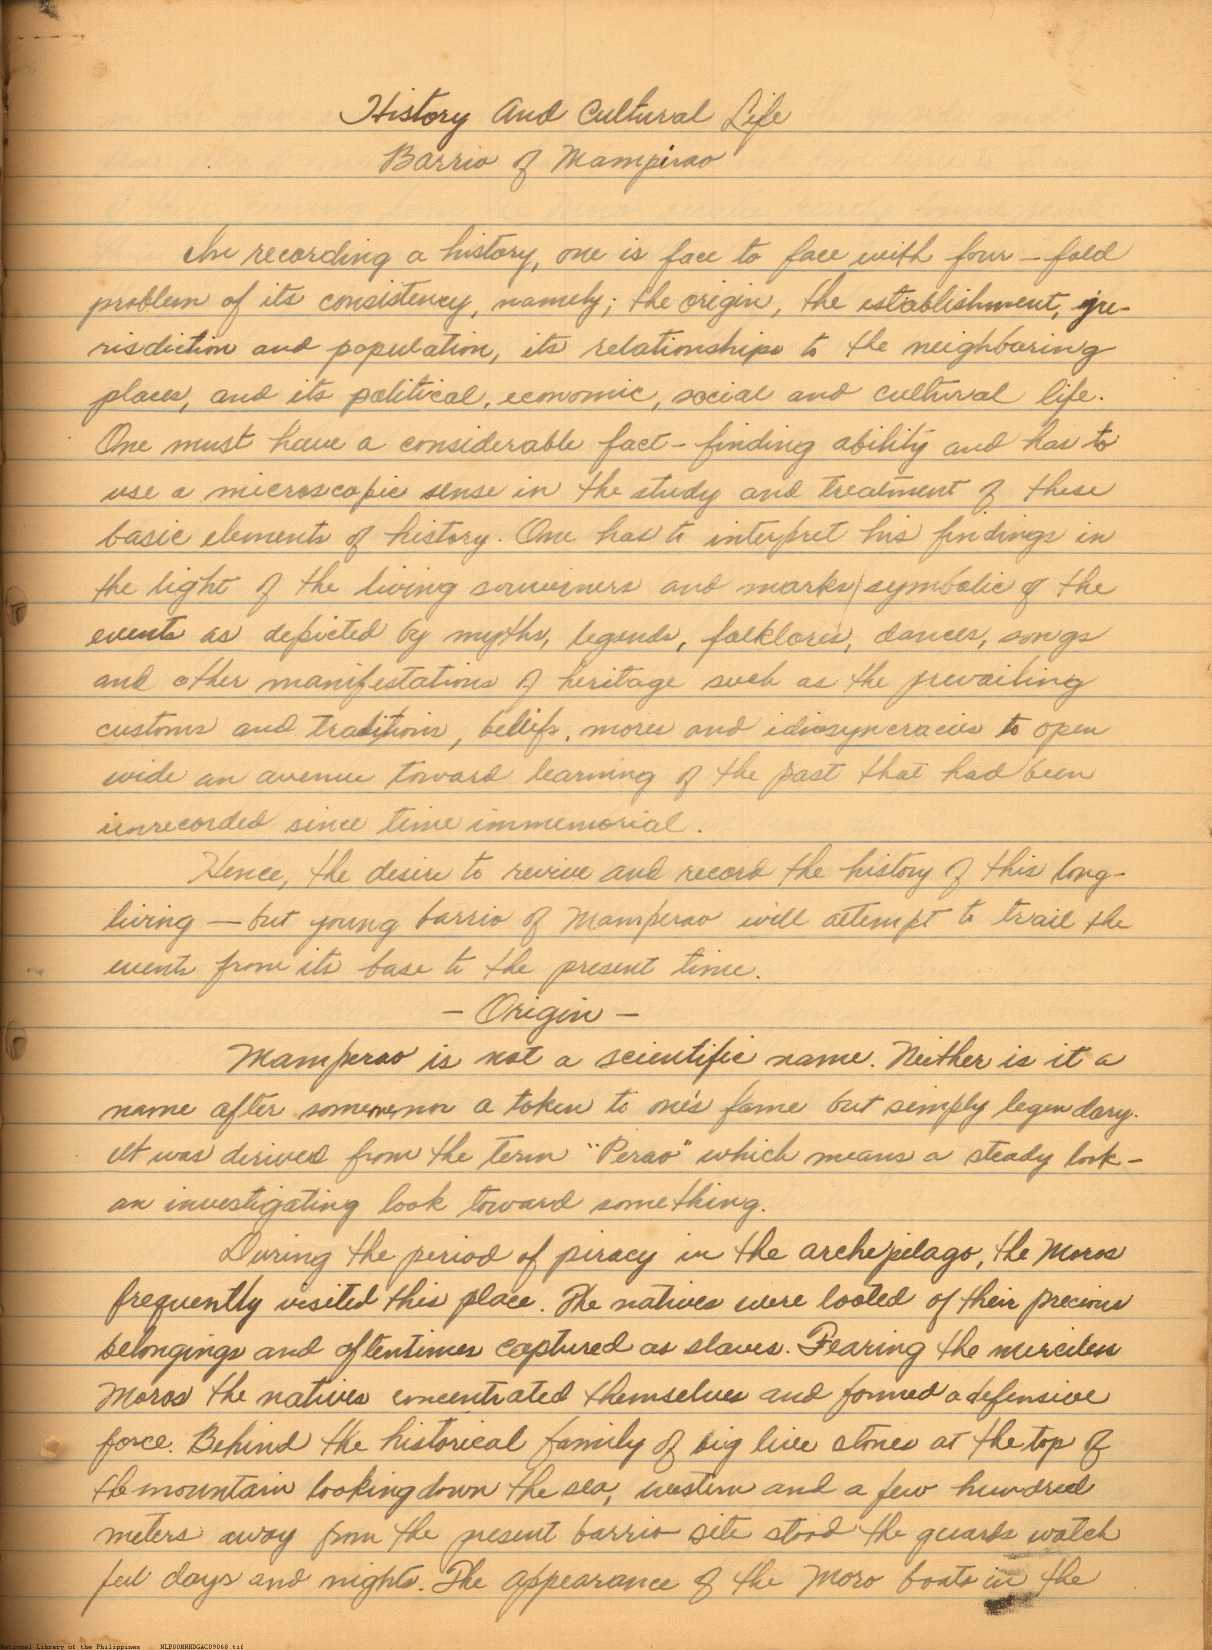 History And Cultural Life
Barrio of Mampirao
In recording a history, one is face to face with four - fold
problem of its consistency, namely; the origin, the establishment, ju-
risdiction and population, its relationships to the neighboring
places, and its political, economic, social and cultural life.
One must have a considerable fact - finding ability and has to
use a microscopic sense in the study and treatment of these
basic elements of history. One has to interpret his findings in
the light of the living souveiners and marks symbolic of the
events as depicted by myths, legends, folklores, dances, songs
and other manifestations of heritage such as the prevailing
customs and traditions, beliefs, mores and idiosyncracies to open
wide an avenue toward learning of the past that had been
unrecorded since time immemorial.
Hence, the desire to revive and record the history of this long-
living — but young barrio of Mamperao will attempt to trail the
events from its base to the present time.
- Origin -
Mamperao is not a scientific name. Neither is it a
name after someone, nor a token to one's fame but simply legendary.
It was dirived from the term "Perao" which means a steady look -
an investigating look toward something.
During the period of piracy in the archepelago, the Moros
frequently visited this place. The natives were looted of their precious
belongings and oftentimes captured as slaves. Fearing the merciless
Moros the natives concentrated themselves and formed a defensive
force. Behind the historical family of big live stones at the top of
the mountain looking down the sea, western and a few hundred
meters away from the present barrio site stood the guards watch
ful days and nights. The appearance of the Moro boats in the
National Library of the Philippines NLP00MNHDGAC09068.tif